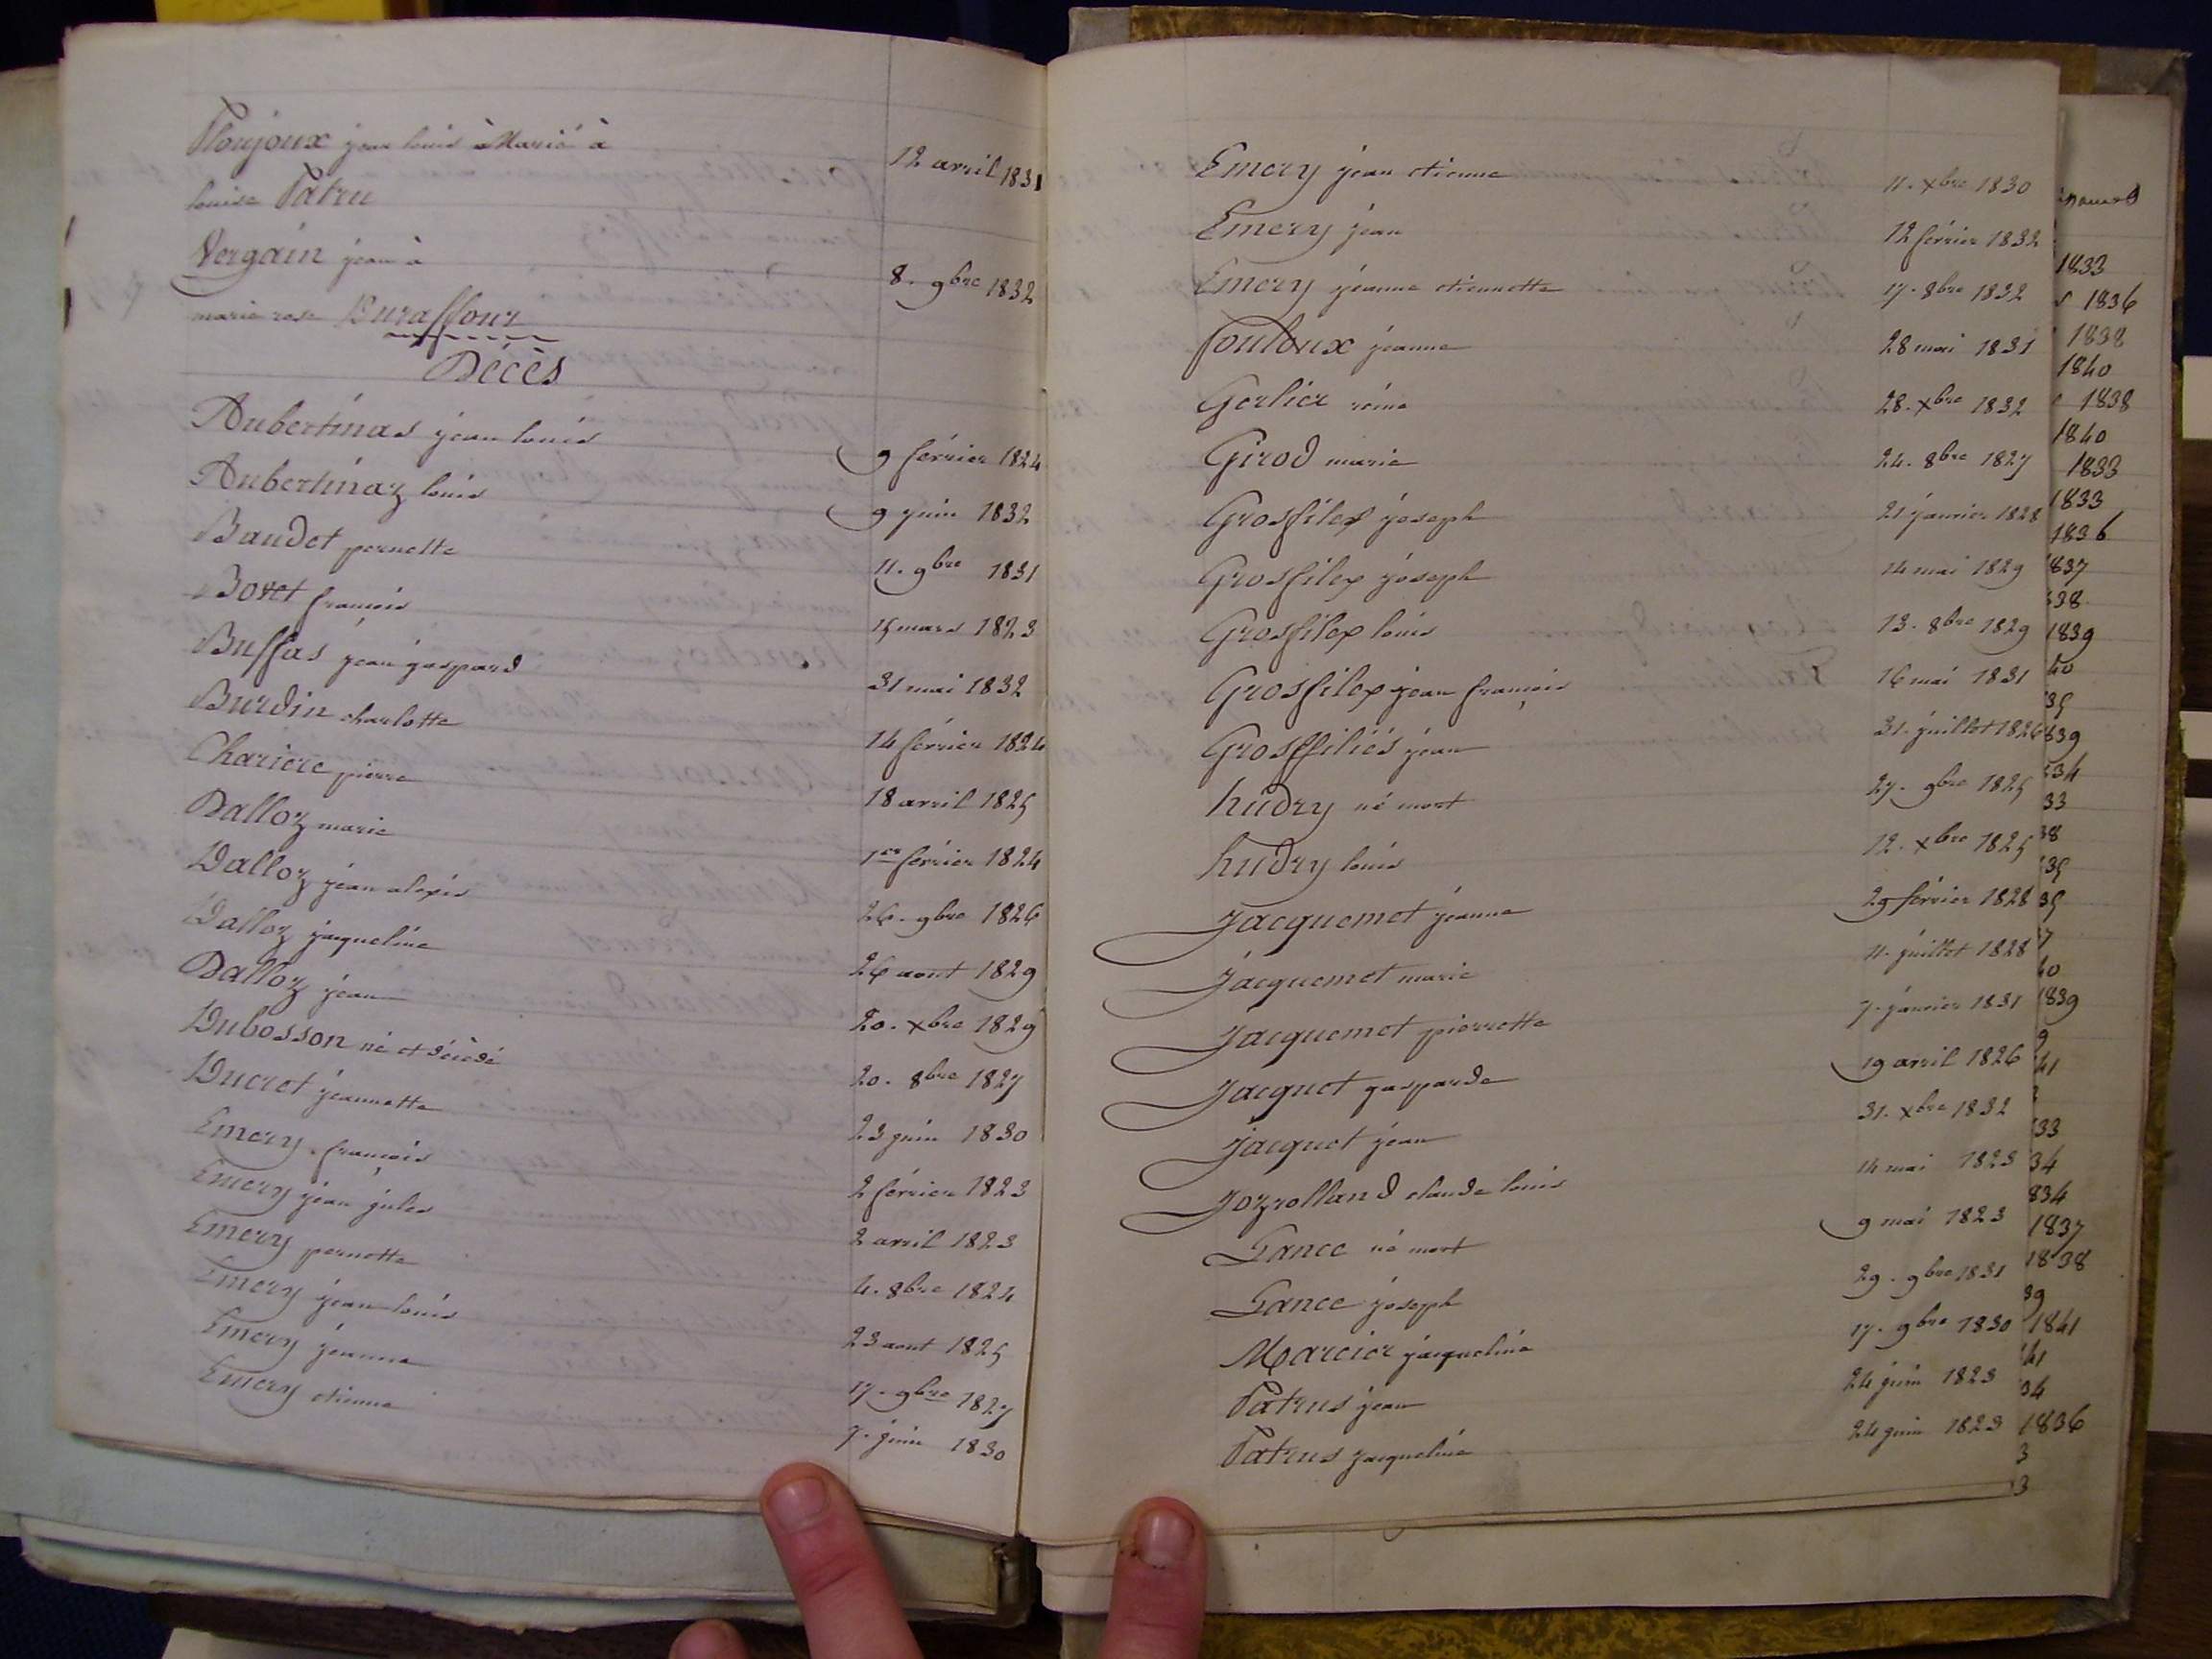 jean louis à Marié à 12 avril 1831
louise Patru
Vergain jean à 8. 9bre 1832
marie rose Buraffour
Décès
Aubertinas jean louis 9 février 1824
Aubertinaz louis 9 juin 1832
Baudet pernette 11. 9bre 1831
Bovet françois 15 mars 1823
Buffas jean gaspard 31 mai 1832
Burdin charlotte 14 février 1824
Chariere pierre 18 avril 1825
Dalloz marie 1er février 1824
Dalloz jean alexis 26. 9bre 1826
Dalloz jacqueline 26 aout 1829
Dalloz jean 20. xbre 1829
Dubosson né et décédé 20. 8bre 1827
Ducret jeannette 23 juin 1830
Emery françois 2 février 1823
Emery jean jules 2 avril 1823
Emery pernette 4. 8bre 1824
Emery jean louis 23 aout 1825
Emery jeanne 17. 9bre 1827
Emery etienne 7. juin 1830
Emery jean etienne 11. xbre 1830
Emery jean 12 février 1832
Emery jeanne etiennette 17. 8bre 1832
fouloux jeanne 28 mai 1831
Gerlier reine 28. xbre 1832
Girod marie 24. 8bre 1827
Grosfilex joseph 21 janvier 1828
Grosfilex joseph 14 mai 1829
Grosfilex louis 13. 8bre 1829
Grosfilex jean françois 16 mai 1831
Grosffiliés jean 31. juillet 1826
hudry né mort 27. 9bre 1825
hudry louis 12. xbre 1825
Jacquemet jeanne 29 février 1828
jacquemet marie 11. juillet 1828
Jacquemet pierrette 7. janvier 1831
Jacquet gasparde 19 avril 1826
jacquet jean 31. xbre 1832
Jozrolland claude louis 14 mai 1823
Lance né mort 9 mai 1823
Lance joseph 29. 9bre 1831
Marcier jacqueline 17. 9bre 1830
Patrus jean 24 juin 1823
Patrus jacqueline 24 juin 1823
1833
1836
1838
1840
1838
1840
1833
1833
1836
837
38
1839
40
35
839
34
33
38
35
35
7
40
1839
9
41
33
34
834
1837
1838
39
1841
41
34
1836
3
3